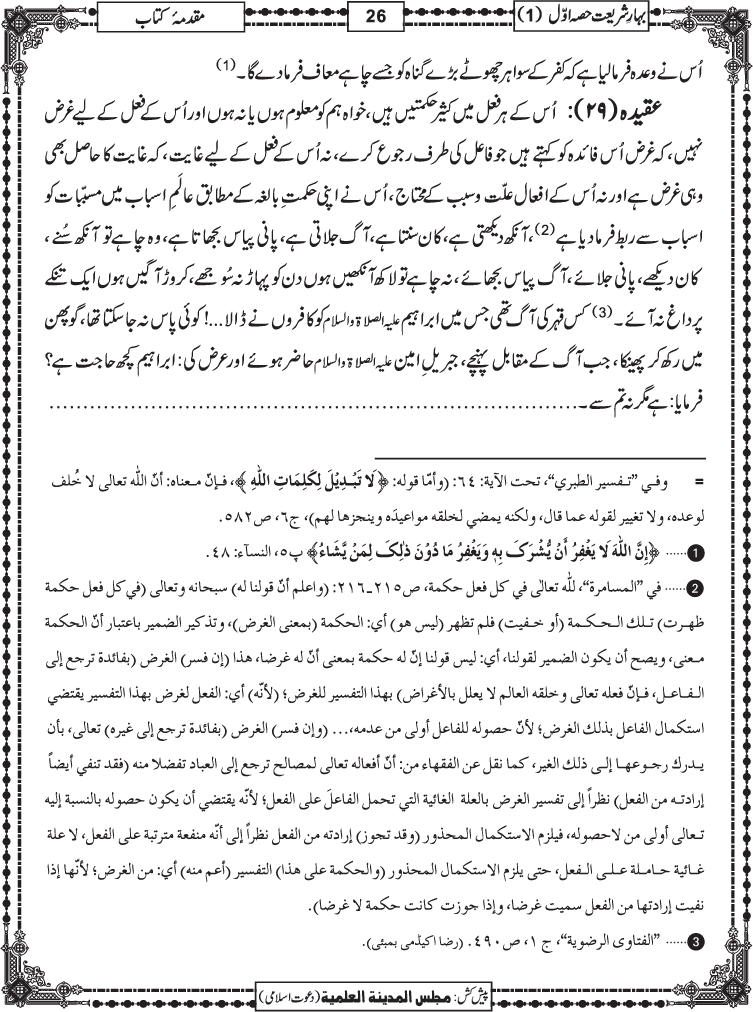 بہارِ شریعت حصہ اوّل (1)
26
مقدمۂ کتاب
اُس نے وعدہ فرما لیا ہے کہ کفر کے سوا ہر چھوٹے بڑے گناہ کو جسے چاہے معاف فرما دے گا۔(1)
عقیدہ (۲۹): اُس کے ہر فعل میں کثیر حکمتیں ہیں، خواہ ہم کو معلوم ہوں یا نہ ہوں اور اُس کے فعل کے لیے غرض
نہیں، کہ غرض اُس فائدہ کو کہتے ہیں جو فاعل کی طرف رجوع کرے، نہ اُس کے فعل کے لیے غایت، کہ غایت کا حاصل بھی
وہی غرض ہے اور نہ اُس کے افعال علّت و سبب کے محتاج، اُس نے اپنی حکمتِ بالغہ کے مطابق عالَمِ اسباب میں مسبّبات کو
اسباب سے ربط فرما دیا ہے(2)، آنکھ دیکھتی ہے، کان سنتا ہے، آگ جلاتی ہے، پانی پیاس بجھاتا ہے، وہ چاہے تو آنکھ سُنے،
کان دیکھے، پانی جلائے، آگ پیاس بجھائے، نہ چاہے تو لاکھ آنکھیں ہوں دن کو پہاڑ نہ سُوجھے، کروڑ آگیں ہوں ایک تنکے
پر داغ نہ آئے۔(3) کس قہر کی آگ تھی جس میں ابراہیم علیہ الصلاۃ والسلام کو کافروں نے ڈالا...! کوئی پاس نہ جا سکتا تھا، گوپھن
میں رکھ کر پھینکا، جب آگ کے مقابل پہنچے، جبریلِ امین علیہ الصلاۃ والسلام حاضر ہوئے اور عرض کی: ابراہیم کچھ حاجت ہے؟
فرمایا: ہے مگر نہ تم سے۔..............................................................................
= وفي ”تفسير الطبري“، تحت الآية: ٦٤: (وأمّا قوله: ﴿لَا تَبْدِيْلَ لِكَلِمَاتِ اللّٰهِ﴾، فإنّ معناه: أنّ الله تعالى لا خُلف
لوعده، ولا تغيير لقوله عما قال، ولكنه يمضي لخلقه مواعيدَه وينجزها لهم)، ج٦، ص٥٨٢.
1 ...... ﴿إِنَّ اللّٰهَ لَا يَغْفِرُ أَنْ يُّشْرَكَ بِهٖ وَيَغْفِرُ مَا دُوْنَ ذٰلِكَ لِمَنْ يَّشَاءُ﴾ پ٥، النسآء: ٤٨.
2 ...... في ”المسامرة“، لله تعالى في كل فعل حكمة، ص٢١٥ـ٢١٦: (واعلم أنّ قولنا له) سبحانه وتعالى (في كل فعل حكمة
ظهرت) تلك الحكمة (أو خفيت) فلم تظهر (ليس هو) أي: الحكمة (بمعنى الغرض)، وتذكير الضمير باعتبار أنّ الحكمة
معنى، ويصح أن يكون الضمير لقولنا، أي: ليس قولنا إن له حكمة بمعنى أنّ له غرضا، هذا (إن فسر) الغرض (بفائدة ترجع إلى
الفاعل، فإنّ فعله تعالى وخلقه العالم لا يعلل بالأغراض) بهذا التفسير للغرض؛ (لأنّه) أي: الفعل لغرض بهذا التفسير يقتضي
استكمال الفاعل بذلك الغرض؛ لأنّ حصوله للفاعل أولى من عدمه،... (وإن فسر) الغرض (بفائدة ترجع إلى غيره) تعالى، بأن
يدرك رجوعها إلى ذلك الغير، كما نقل عن الفقهاء من: أنّ أفعاله تعالى لمصالح ترجع إلى العباد تفضلا منه (فقد تنفي أيضاً
إرادته من الفعل) نظراً إلى تفسير الغرض بالعلة الغائية التي تحمل الفاعلَ على الفعل؛ لأنّه يقتضي أن يكون حصوله بالنسبة إليه
تعالى أولى من لاحصوله، فيلزم الاستكمال المحذور (وقد تجوز) إرادته من الفعل نظراً إلى أنّه منفعة مترتبة على الفعل، لا علة
غائية حاملة على الفعل، حتى يلزم الاستكمال المحذور (والحكمة على هذا) التفسير (أعم منه) أي: من الغرض؛ لأنّها إذا
نفيت إرادتها من الفعل سميت غرضا، وإذا جوزت كانت حكمة لا غرضا).
3 ...... ”الفتاوى الرضوية“، ج ١، ص٤٩٠. (رضا اکیڈمی بمبئی).
پیش کش: مجلس المدينة العلمية (دعوت اسلامی)